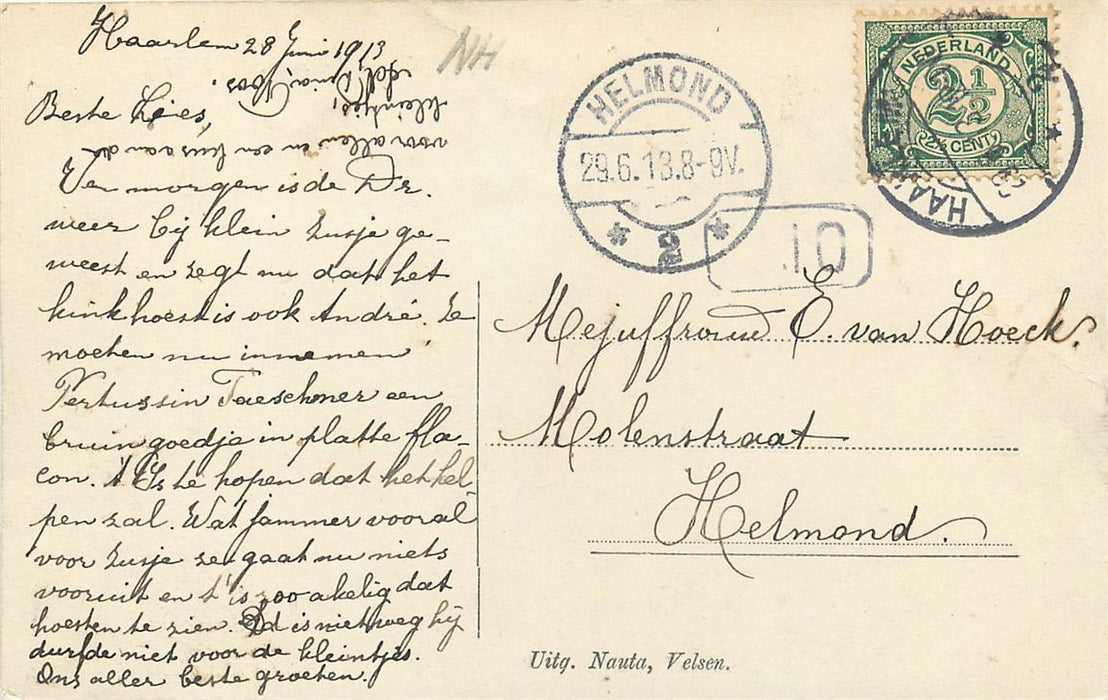 Haarlem 28 Juni 1913
Beste Lies,
Van morgen is de Dr.
weer bij klein zusje ge-
weest en zegt nu dat het
kinkhoest is ook André. Ze
moeten nu innemen
Pertussin Taeschner een
bruin goedje in platte fla-
con. 't Is te hopen dat het hel-
pen zal. Wat jammer vooral
voor zusje ze gaat nu niets
vooruit en 't is zoo akelig dat
hoesten te zien. Ed is niet weg hij
durfde niet voor de kleintjes.
Ons aller beste groeten.
voor allen en een kus aan de
kleintjes,
Roos
NH
HELMOND
29.6.13.8-9V.
2
10
NEDERLAND
2½
2½ CENT
HAARLEM
Mejuffrouw E. van Hoeck.
Molenstraat
Helmond.
Uitg. Nauta, Velsen.